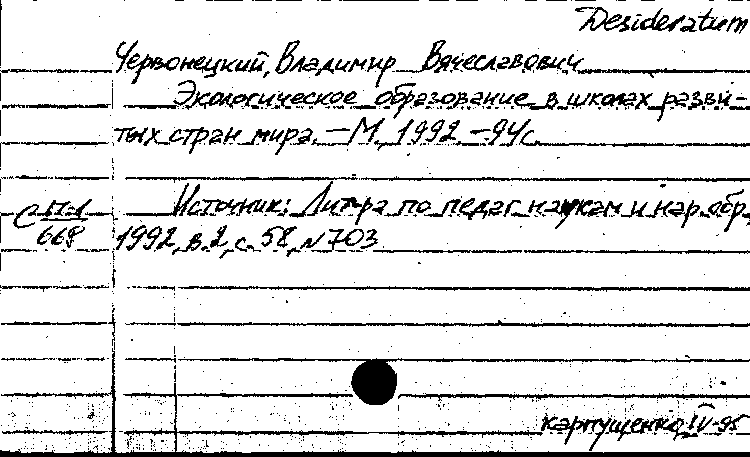 Desideratum
Червонецкий, Владимир Вячеславович
Экологическое образование в школах разви-
тых стран мира. — М., 1992. — 94 с.
Источник: Лит-ра по педаг. наукам и нар. обр.,
1992, в. 2, с. 58, N 703
C П-1
668
Карпущенко, IV-95